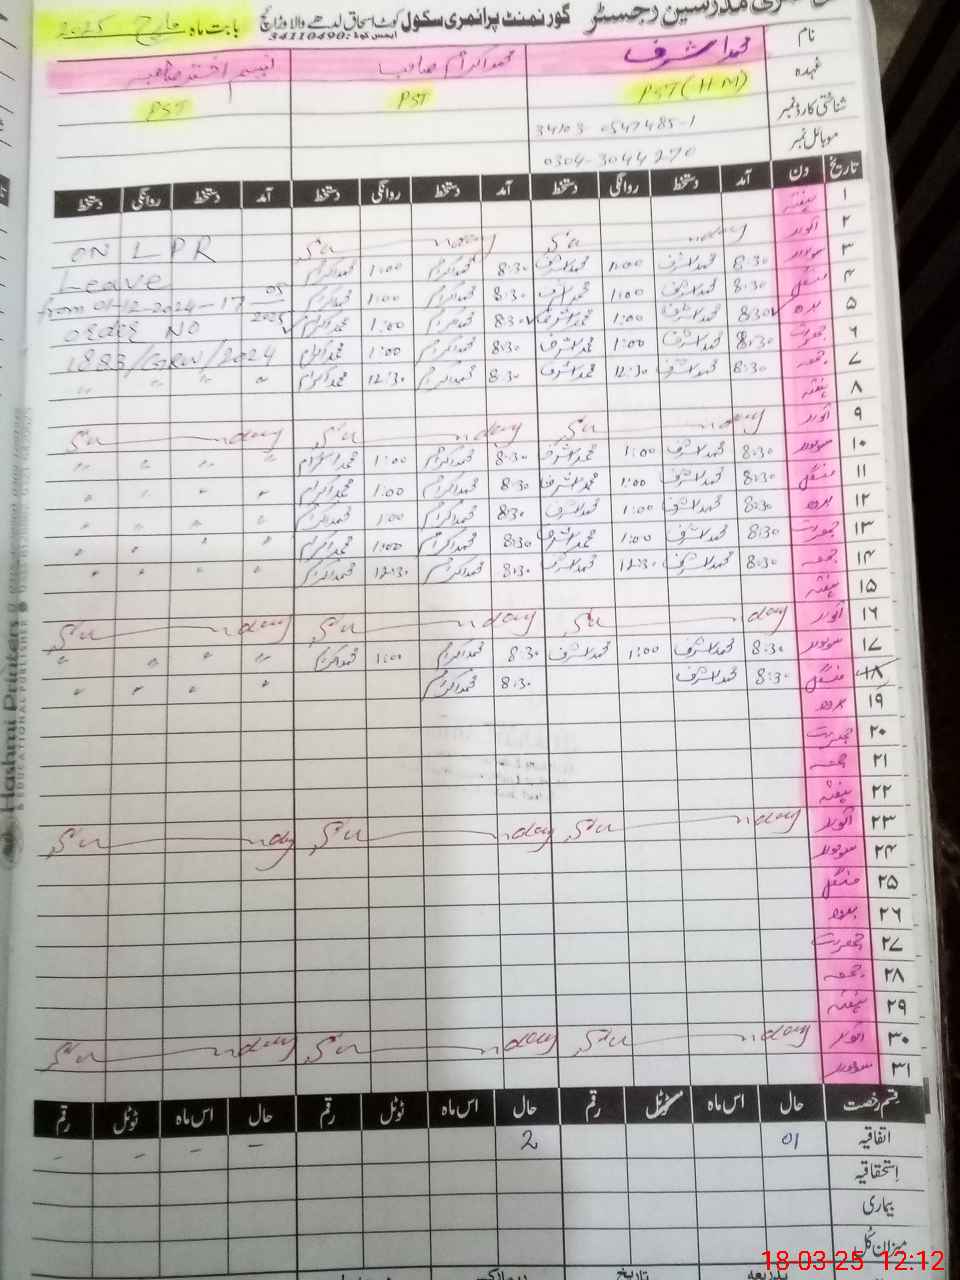 حاضری مدرسین رجسٹر گورنمنٹ پرائمری سکول کوٹ اسحاق لدھے والا وڑائچ بابت ماہ مارچ 2025
ایمس کوڈ: 34110490
نام محمد اشرف محمد اکرام صاحب
عہدہ PST (HM) PST PST
شناختی کارڈ نمبر 34103-0547485-1
موبائل نمبر 0304-3044270
تاریخ دن آمد دستخط روانگی دستخط آمد دستخط روانگی دستخط آمد دستخط روانگی دستخط
۱ ہفتہ
۲ اتوار Sunday Sunday ON LPR
۳ سوموار 8:30 محمد اشرف 1:00 محمد اشرف 8:30 محمد اکرام 1:00 محمد اکرام Leave
۴ منگل 8:30 محمد اشرف 1:00 محمد اشرف 8:30 محمد اکرام 1:00 محمد اکرام from 01-12-2024-17-05 2025
۵ بدھ 8:30 محمد اشرف 1:00 محمد اشرف 8:30 محمد اکرام 1:00 محمد اکرام order NO
۶ جمعرات 8:30 محمد اشرف 1:00 محمد اشرف 8:30 محمد اکرام 1:00 محمد اکرام 1883/GRW/2024
۷ جمعہ 8:30 محمد اشرف 12:30 محمد اشرف 8:30 محمد اکرام 12:30 محمد اکرام " " " "
۸ ہفتہ
۹ اتوار Sunday Sunday Sunday
۱۰ سوموار 8:30 محمد اشرف 1:00 محمد اشرف 8:30 محمد اکرام 1:00 محمد اکرام " " " "
۱۱ منگل 8:30 محمد اشرف 1:00 محمد اشرف 8:30 محمد اکرام 1:00 محمد اکرام " " " "
۱۲ بدھ 8:30 محمد اشرف 1:00 محمد اشرف 8:30 محمد اکرام 1:00 محمد اکرام " " " "
۱۳ جمعرات 8:30 محمد اشرف 1:00 محمد اشرف 8:30 محمد اکرام 1:00 محمد اکرام " " " "
۱۴ جمعہ 8:30 محمد اشرف 12:30 محمد اشرف 8:30 محمد اکرام 12:30 محمد اکرام " " " "
۱۵ ہفتہ
۱۶ اتوار Sunday Sunday Sunday
۱۷ سوموار 8:30 محمد اشرف 1:00 محمد اشرف 8:30 محمد اکرام 1:00 محمد اکرام " " " "
۱۸ منگل 8:30 محمد اشرف 8:30 محمد اکرام " " " "
۱۹ بدھ
۲۰ جمعرات
۲۱ جمعہ
۲۲ ہفتہ
۲۳ اتوار Sunday Sunday Sunday
۲۴ سوموار
۲۵ منگل
۲۶ بدھ
۲۷ جمعرات
۲۸ جمعہ
۲۹ ہفتہ
۳۰ اتوار Sunday Sunday Sunday
۳۱ سوموار
قسم رخصت حال اس ماہ ٹوٹل رقم حال اس ماہ ٹوٹل رقم حال اس ماہ ٹوٹل رقم
اتفاقیہ 01 2 - - - -
استحقاقیہ
بیماری
میزان کُل
تاریخ
Hashmi Printers
& EDUCATIONAL PUBLISHER
18-03-25 12:12